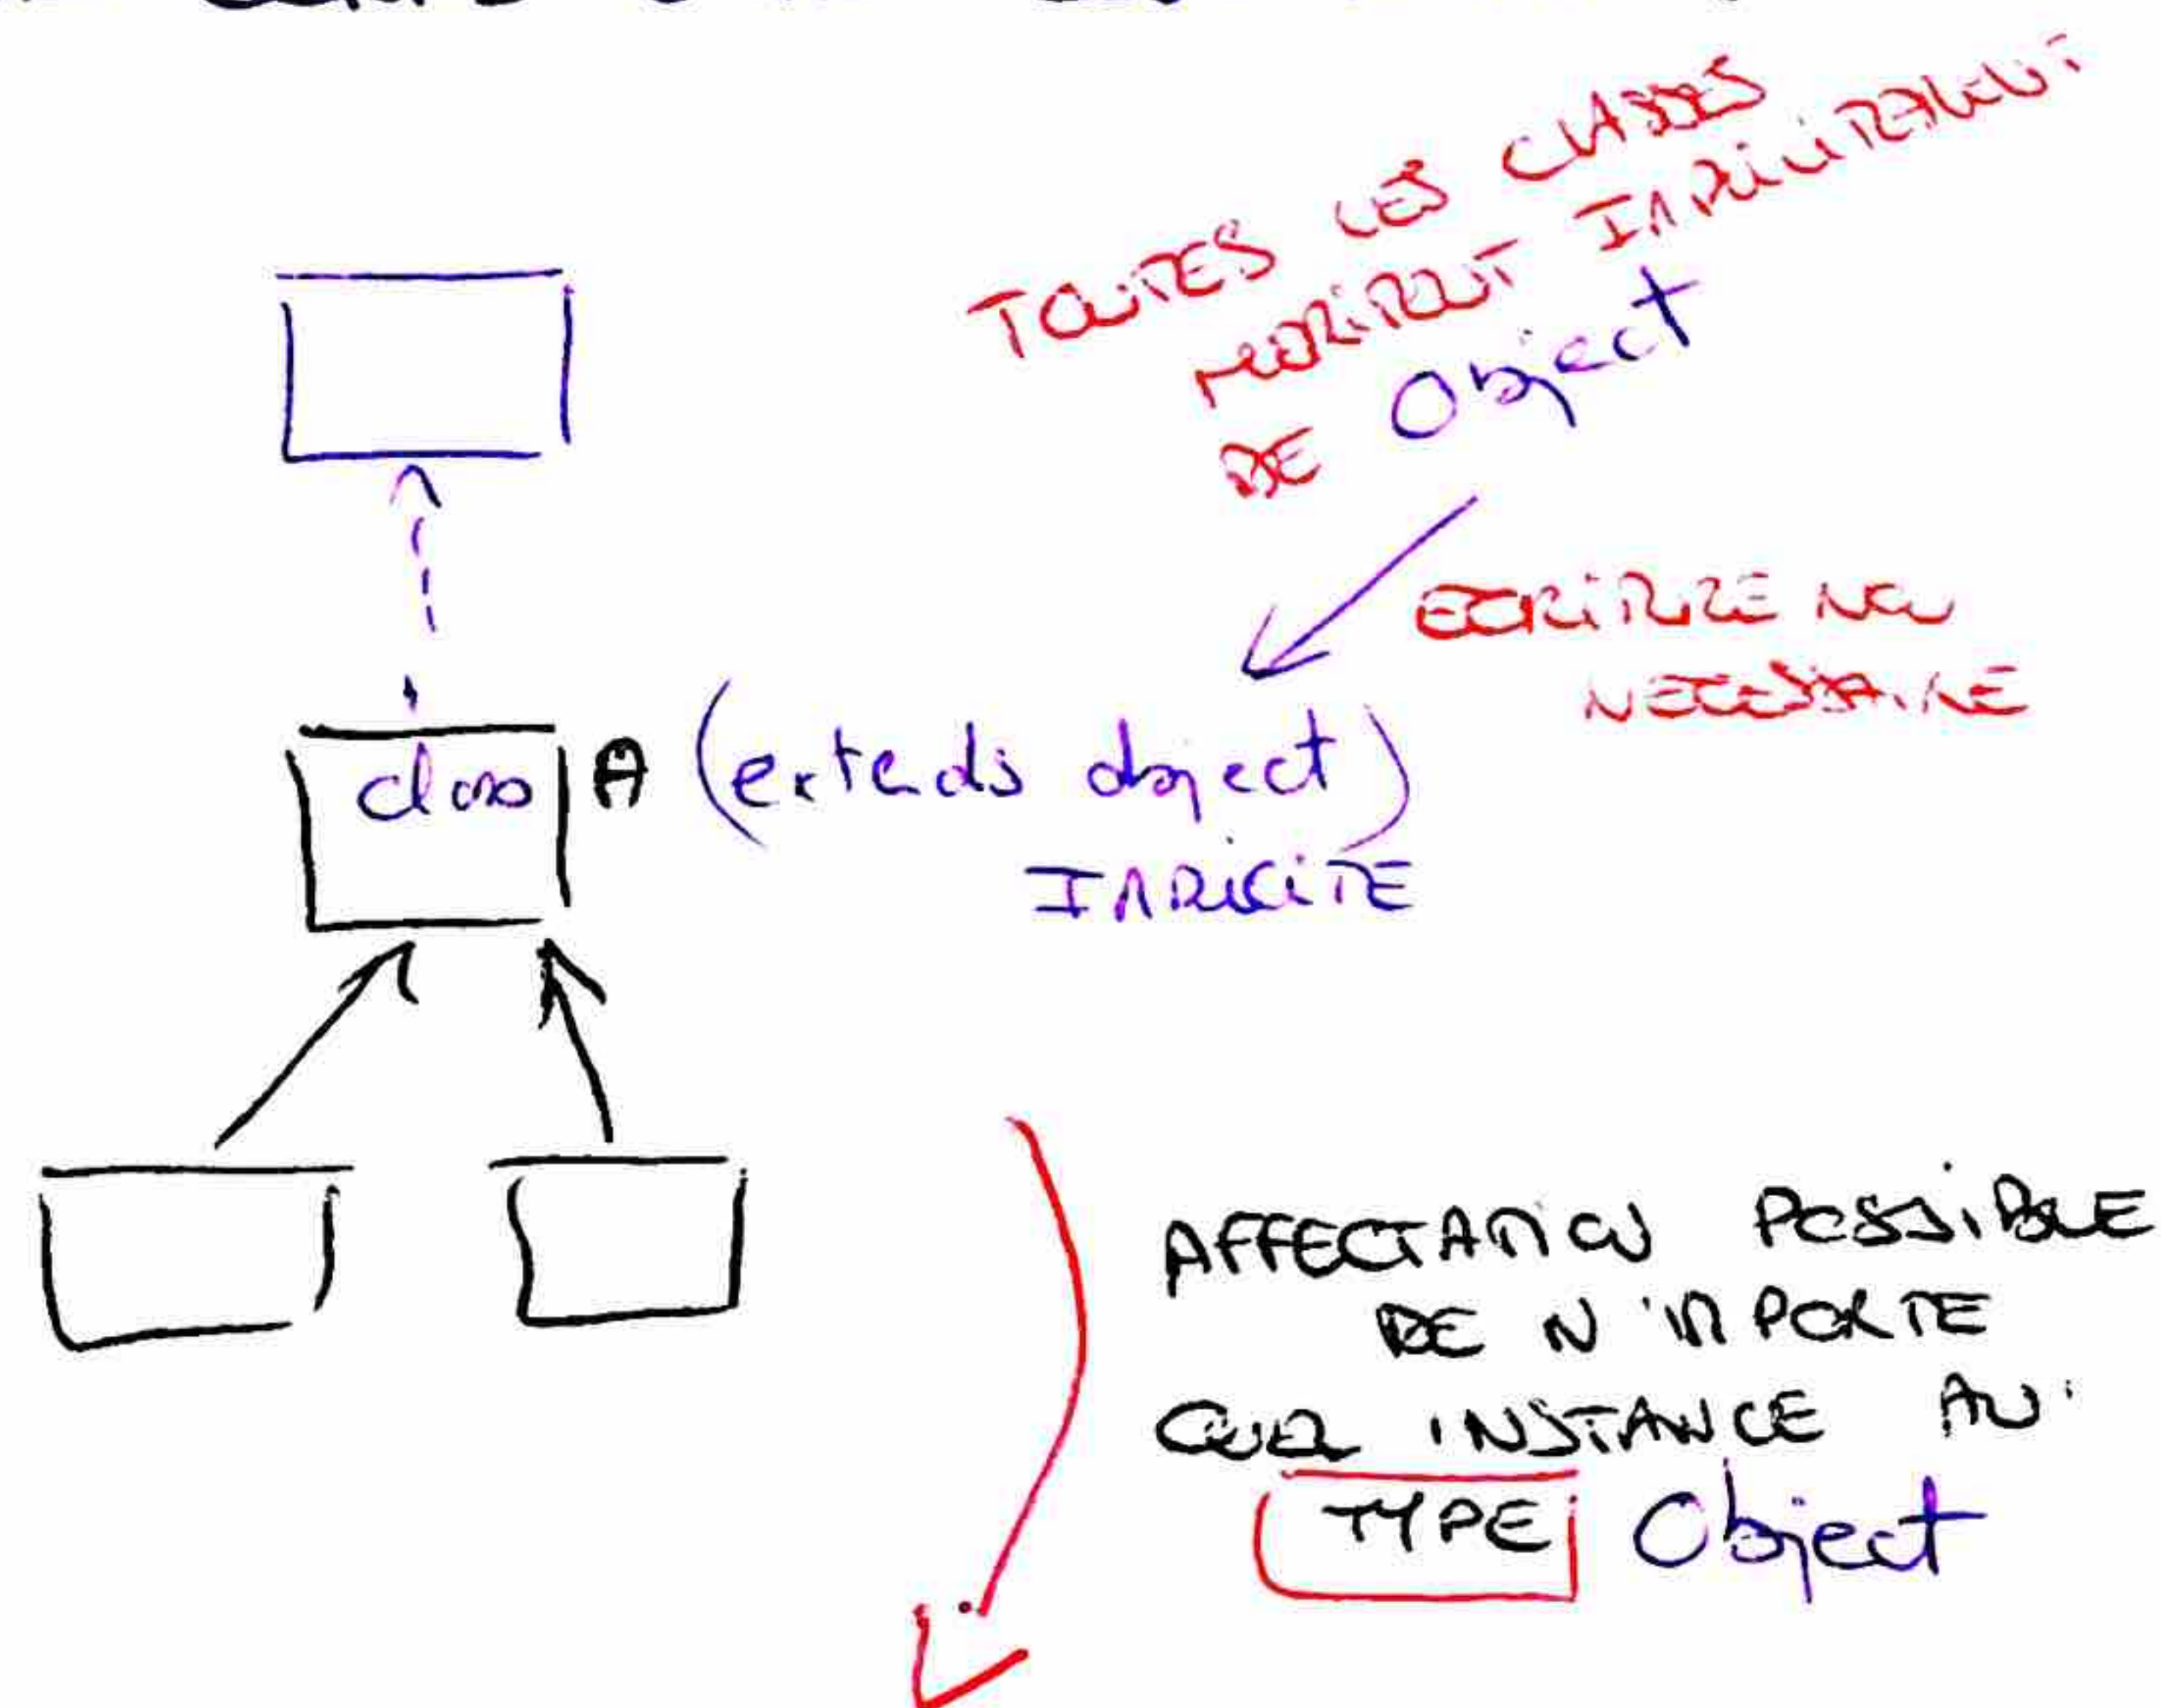 TOUTES LES CLASSES
HÉRITENT IMPLICITEMENT
DE Object
ECRITURE NON
NECESSAIRE
class A (extends object)
IMPLICITE
AFFECTATION POSSIBLE
DE N'IMPORTE
QUEL INSTANCE AU
TYPE Object